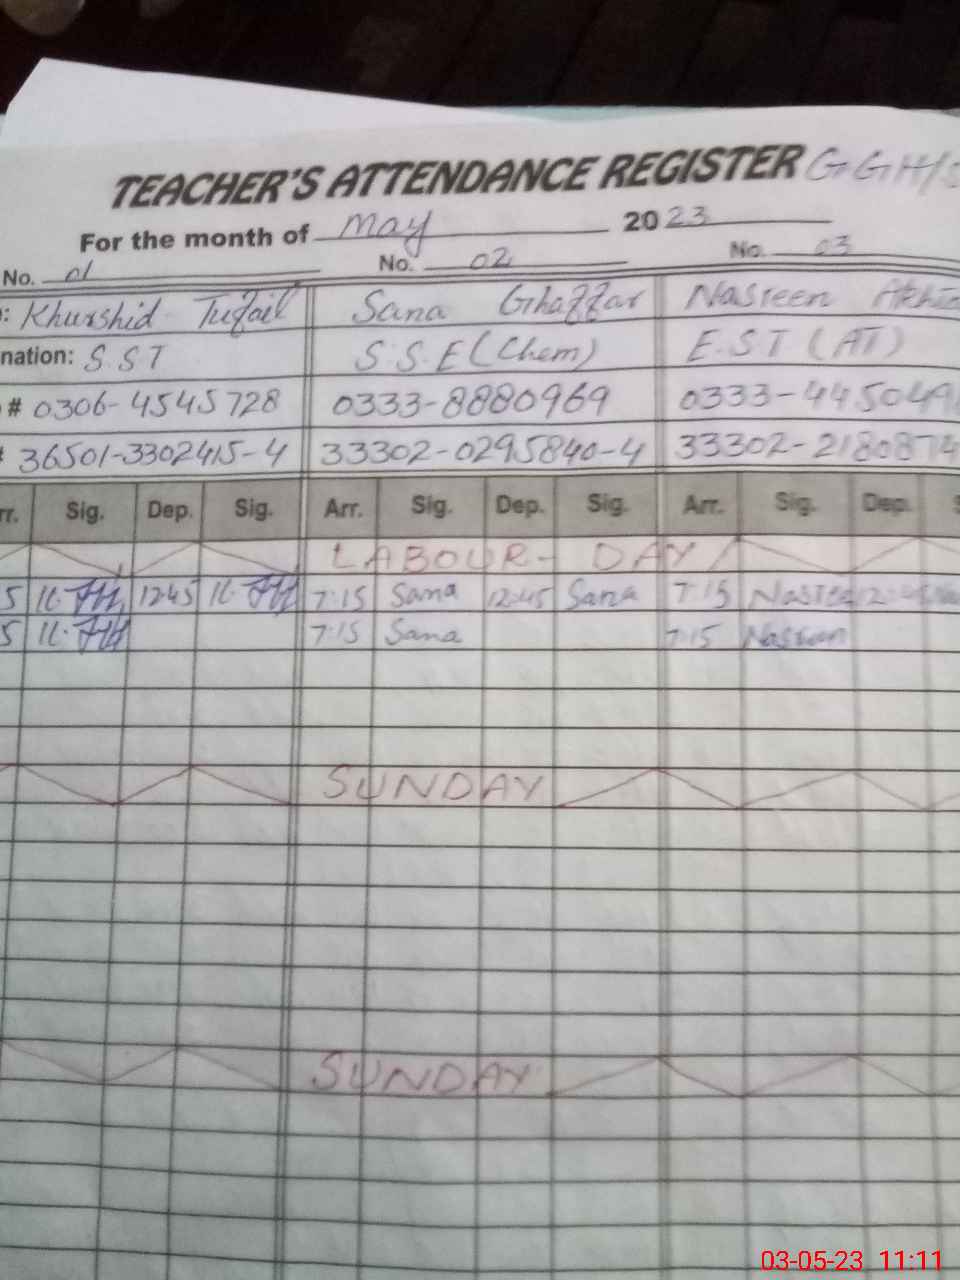 TEACHER'S ATTENDANCE REGISTER GGH/S
For the month of May 2023
No. 01 No. 02 No. 03
: Khurshid Tufail Sana Ghaffar Nasreen Akh
nation: S.ST S.S.E (Chem) E.ST (AT)
# 0306-4545728 0333-8880969 0333-445049
# 36501-3302415-4 33302-0295840-4 33302-2180874
rr. Sig. Dep. Sig. Arr. Sig. Dep. Sig. Arr. Sig. Dep. S
LABOUR- DAY
5 12:45 7:15 Sana 12:45 Sana 7:15 Nasreen
5 7:15 Sana 7:15 Nasreen
SUNDAY
SUNDAY
03-05-23 11:11